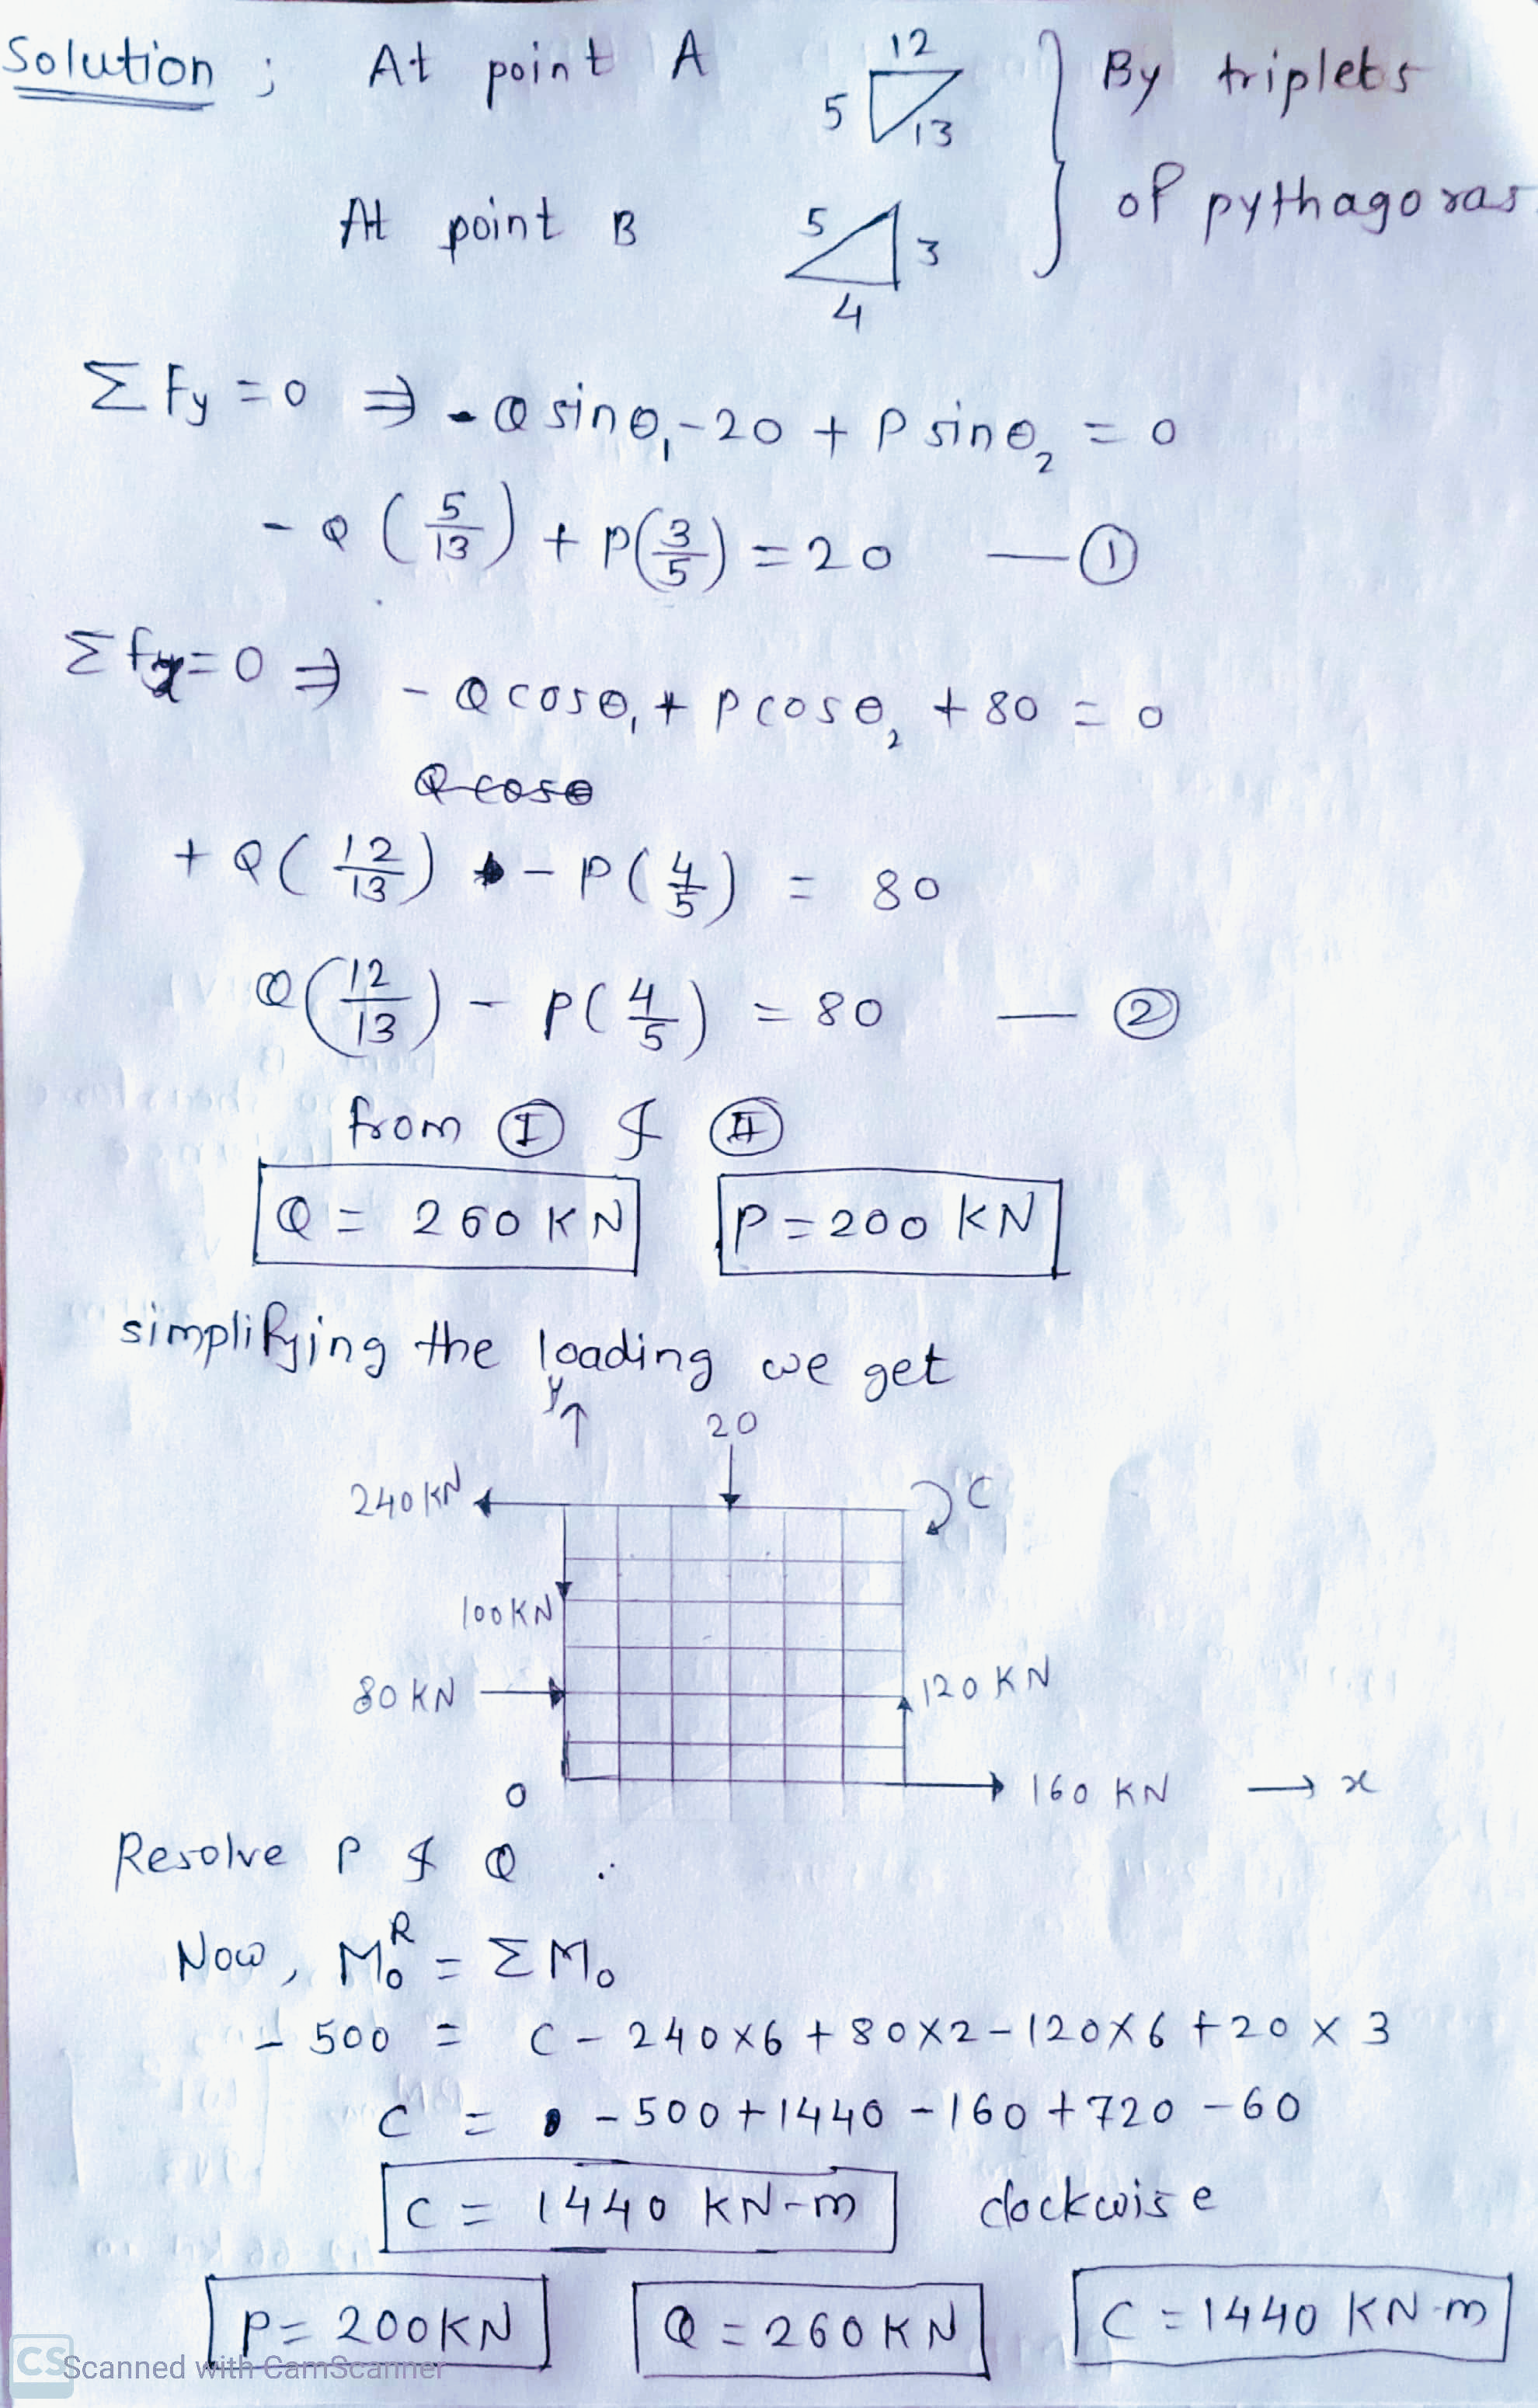 Solution ; At point A 12 5 13 By triplets
At point B 5 3 4 of pythagoras
Σ Fy = 0 ⇒ - Q sinθ₁ - 20 + P sinθ₂ = 0
- Q (5/13) + P(3/5) = 20 — ①
Σ fx = 0 ⇒ - Q cosθ₁ + P cosθ₂ + 80 = 0
Q cosθ
+ Q (12/13) - P (4/5) = 80
Q (12/13) - P (4/5) = 80 — ②
from Ⓘ & Ⓘ︎Ⓘ
Q = 260 KN P = 200 KN
simplifying the loading we get
y ↑ 20
240 KN C
100 KN
80 KN 120 KN
0 160 KN → x
Resolve P & Q .
Now, M₀ᴿ = Σ M₀
- 500 = C - 240 × 6 + 80 × 2 - 120 × 6 + 20 × 3
C = - 500 + 1440 - 160 + 720 - 60
C = 1440 KN-m clockwise
P = 200 KN Q = 260 KN C = 1440 KN-m
CS Scanned with CamScanner